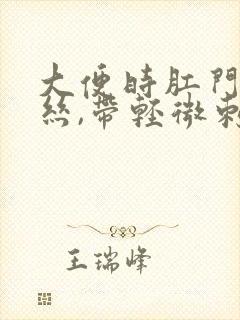 大便時肛門
絲,帶輕微刺
王瑞峰